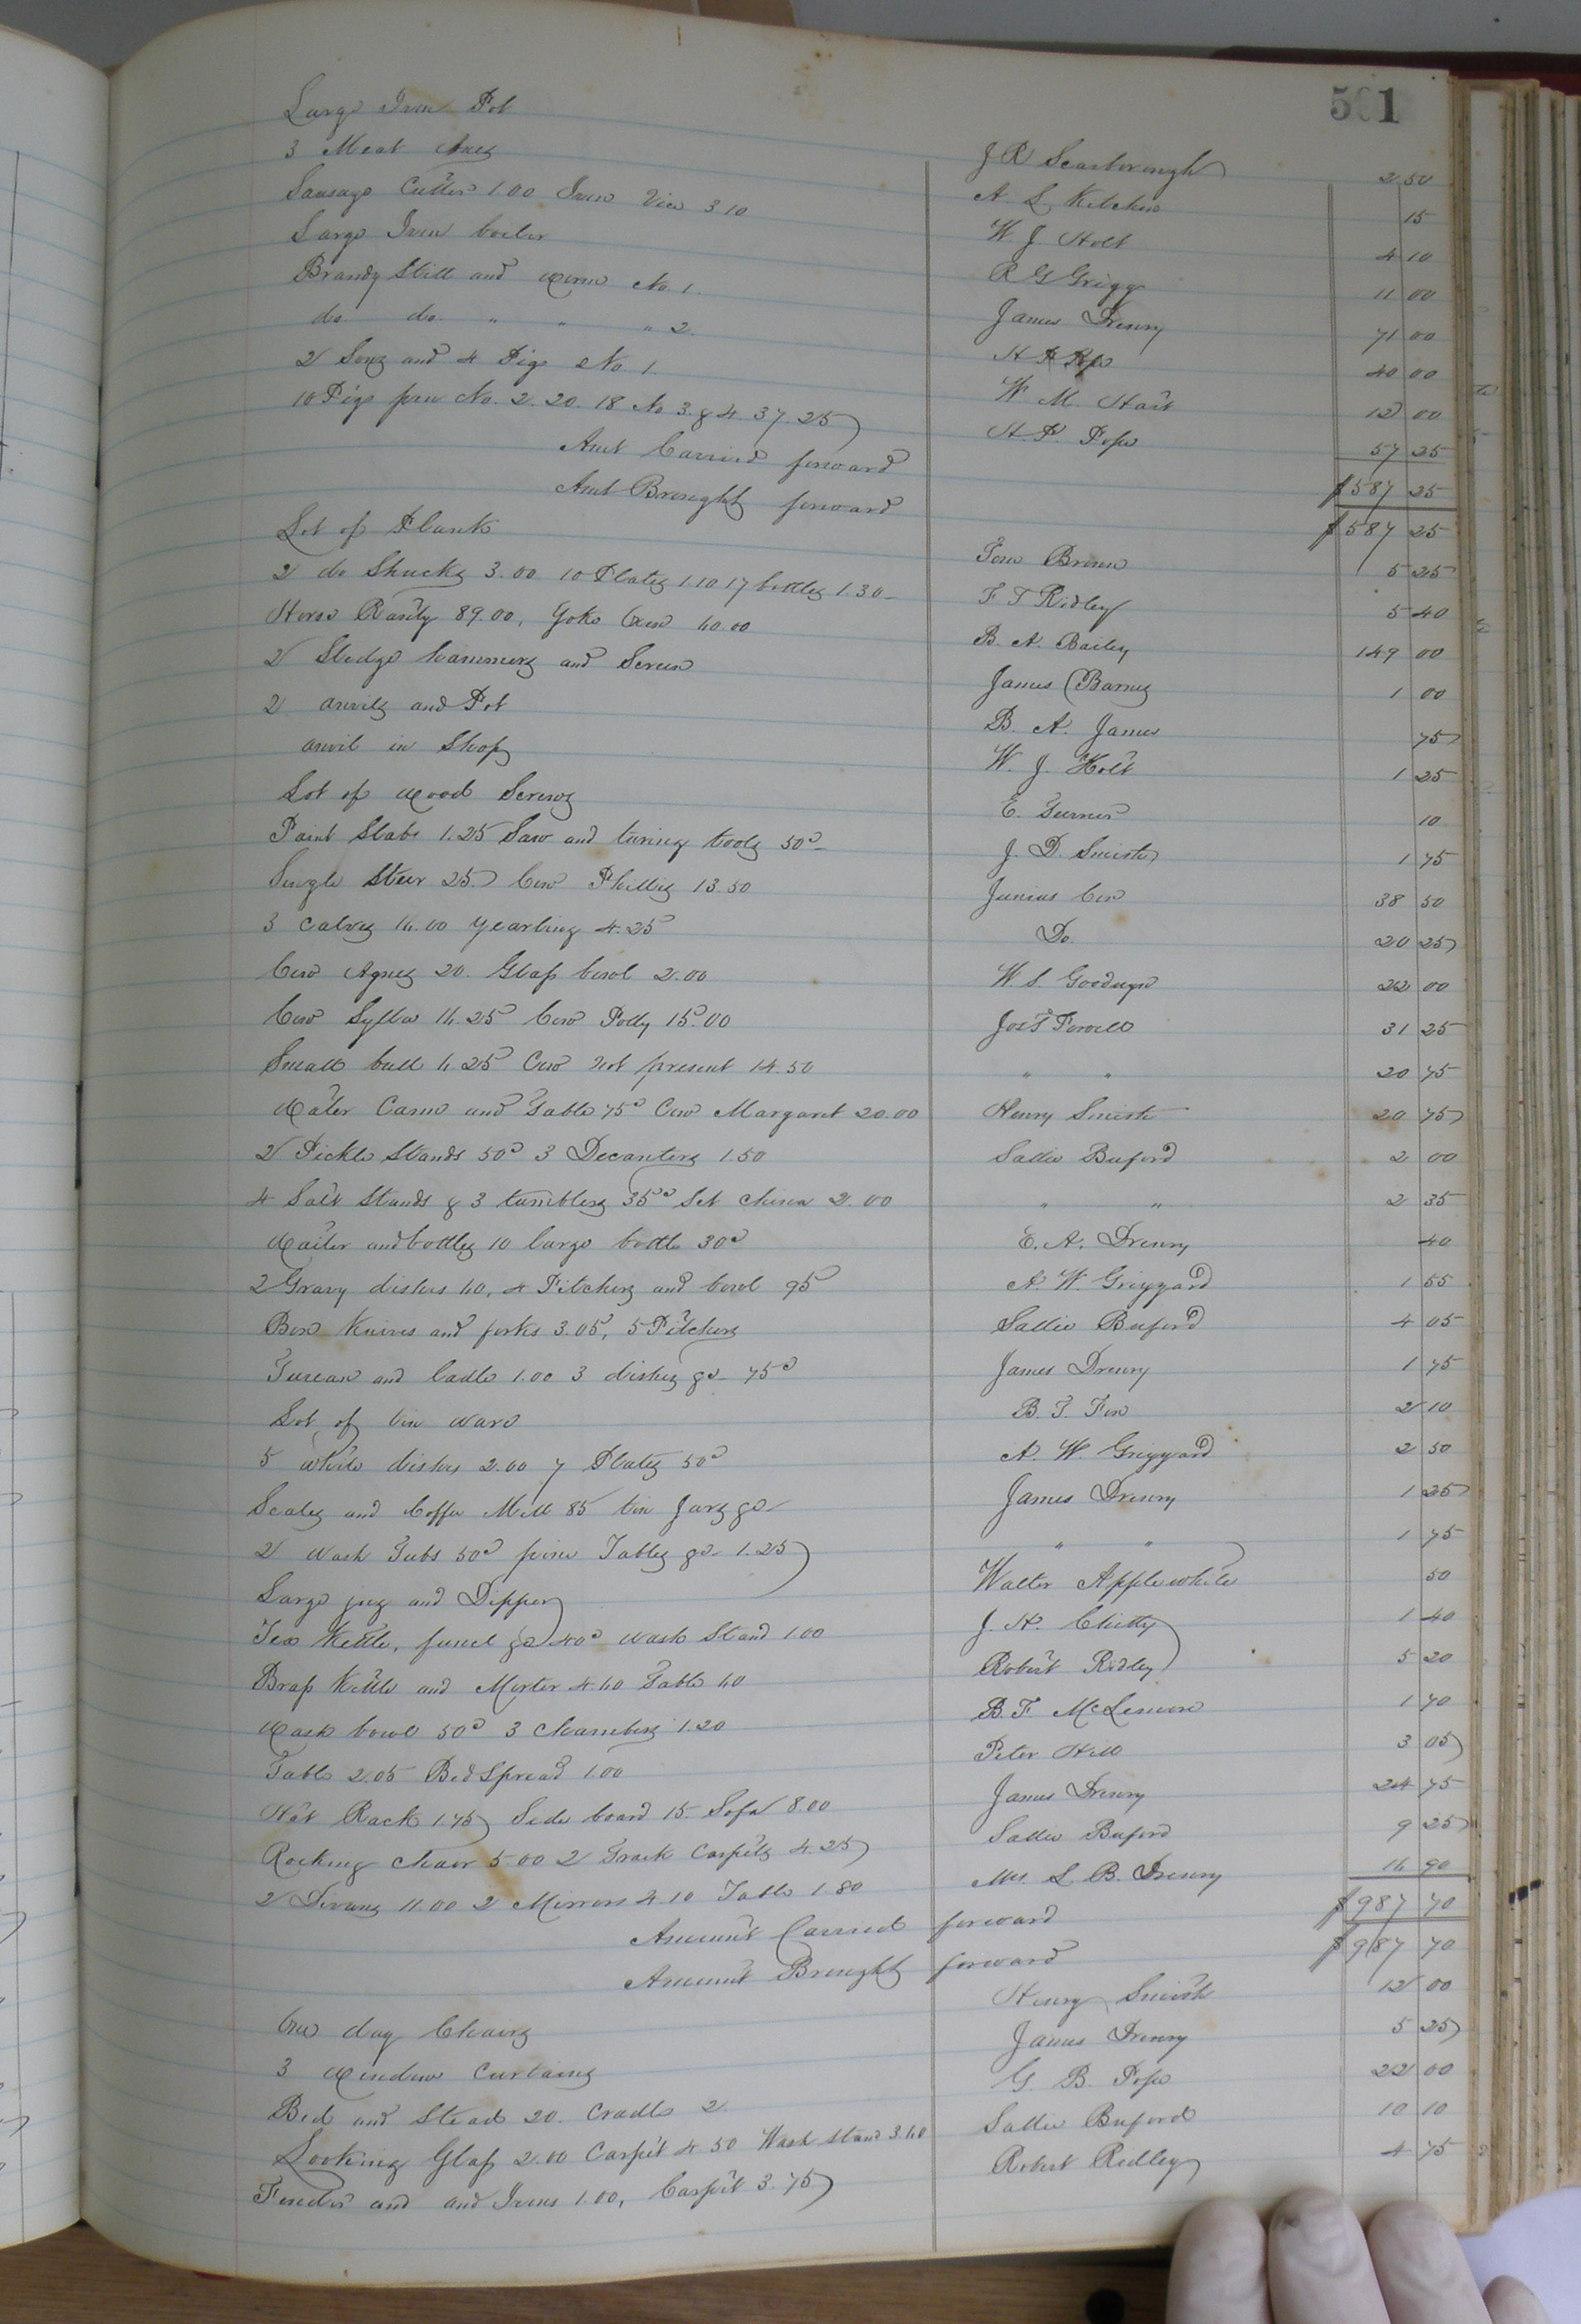 501
Large Iron Pot J R Scarborough 2 50
3 Meat Axes A. L. Kitchen 15
Sausage Cutter 1.00 Iron Vice 3.10 W. J. Holt 4 10
Large Iron boiler R G Grigg 11 00
Brandy Still and worm No. 1. James Drewry 71 00
do. do. " " " 2. H P Pope 40 00
2 Sows and 4 Pigs No. 1. W. M. Hart 12 00
10 Pigs pen No. 2. 20. 18 No 3. & 4. 37.25 H. P. Pope 57 25
Amt Carried forward $587 25
Amt Brought forward $587 25
Lot of Plank Tom Brown 5 25
2 do Shucks 3.00 10 Plates 1.10 17 bottles 1.30 T. T. Ridley 5 40
Horse Rarity 89.00, Yoke Oxen 60.00 B. A. Bailey 149 00
2 Sledge hammers and Screen James Barnes 1 00
2 anvils and Pot B. A. James 75
anvil in Shop W. J. Holt 1 25
Lot of Wood Screws E. Turner 10
Paint Slabs 1.25 Saw and turing tools 50c J. D. Smith 1 75
Single Steer 25. Cow Phillis 13.50 Junius Cox 38 50
3 Calves 16.00 yearling 4.25 Do. 20 25
Cow Agnes 20. Glass bowl 2.00 W. S. Goodwyn 22 00
Cow Sylla 16.25 Cow Polly 15.00 Jos T Powell 31 25
Small bull 6.25 Cow not present 14.50 " " 20 75
Water Cans and Table 75c Cow Margaret 20.00 Henry Smith 20 75
2 Pickle Stands 50c 3 Decanters 1.50 Sallie Buford 2 00
4 Salt Stands & 3 tumblers 35c Set China 2.00 " " 2 35
Waiter and bottles 10 large bottle 30c E. A. Drewry 40
2 Gravy dishes 60, 4 Pitchers and bowl 95 A. W. Grizzard 1 55
Box Knives and forks 3.05, 5 Pitchers Sallie Buford 4 05
Turean and Ladle 1.00 3 dishes &c 75c James Drewry 1 75
Lot of tin ware B. T. Fox 2 10
5 white dishes 2.00 7 Plates 50c A. W. Grizzard 2 50
Scales and Coffee Mill 85 tin Jars &c James Drewry 1 25
2 Wash Tubs 50c pine Tables &c 1.25 " " 1 75
Large jug and Dipper Walter Applewhite 50
Tea Kettle, funel &c 40c Wash Stand 1.00 J. H. Chitty 1 40
Brass Kettle and Morter 4.60 Table 60 Robert Ridley 5 20
Wash bowl 50c 3 Chambers 1.20 B. F. McLemore 1 70
Table 2.05 Bed Spread 1.00 Peter Hill 3 05
Hat Rack 1.75 Side board 15. Sofa 8.00 James Drewry 24 75
Rocking Chair 5.00 2 Track Carpets 4.25 Sallie Buford 9 25
2 Divans 11.00 2 Mirrors 4.10 Table 1.80 Mrs. L. B. Drewry 16 90
Amount Carried forward $987 70
Amount Brought forward $987 70
One doz Chairs Henry Smith 12 00
3 Window Curtains James Drewry 5 25
Bed and Stead 20. Cradle 2. G. B. Pope 22 00
Looking Glass 2.00 Carpet 4.50 Wash Stand 3.60 Sallie Buford 10 10
Fender and and Irons 1.00, Carpet 3.75 Robert Ridley 4 75